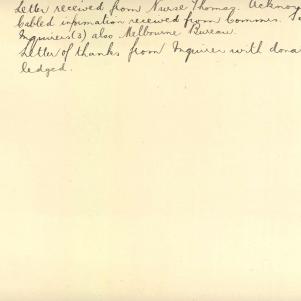 Letter received from Nurse Thomas. Acknow
Cabled information received from Commis.
Inquirers (3) also Melbourne Bureau.
Letter of thanks from Inquirer with dona
ledged.